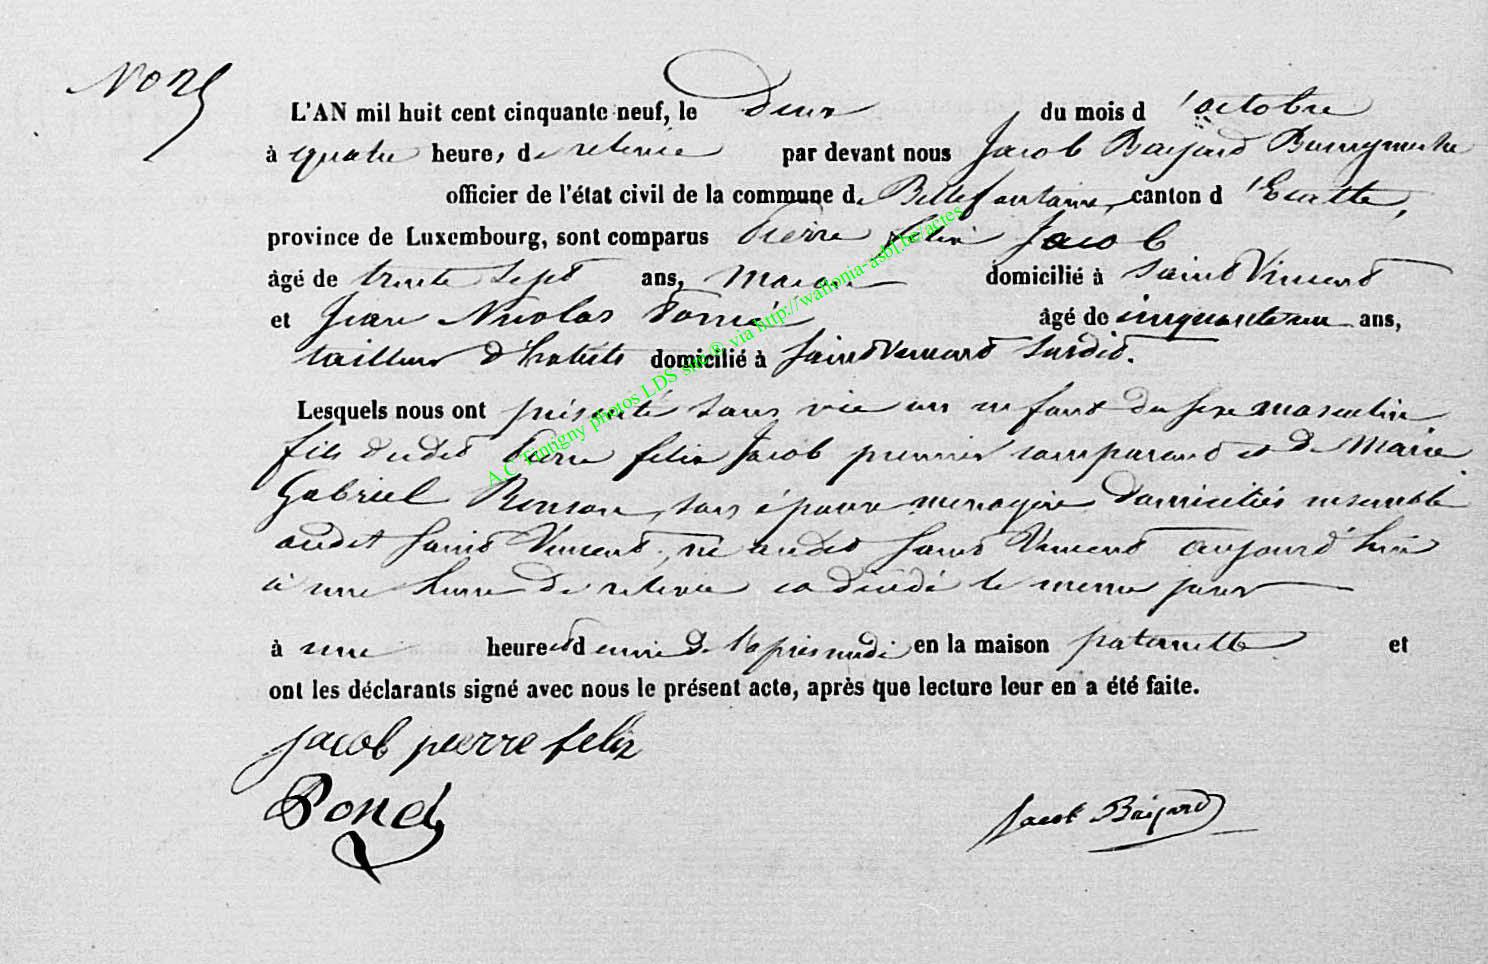 L'AN mil huit cent cinquante neuf, le Deux du mois d'octobre
à quatre heures de relevée par devant nous Jacob Bayard Bourgmestre
officier de l'état civil de la commune de Bellefontaine, canton d'Etalle,
province de Luxembourg, sont comparus Pierre felix Jacob
âgé de trente sept ans, domicilié à Saint Vincent
et Jean Nicolas âgé de cinquante ans,
tailleur d'habits domicilié à Saint Vincent susdit.
Lesquels nous ont présenté sans vie un enfant du sexe masculin
fils dudit Pierre felix Jacob premier comparant et de Marie
Gabriel Renson, son épouse ménagère domiciliés ensemble
audit Saint Vincent, né audit Saint Vincent aujourd'hui
à une heure de relevée et décédé le meme jour
à une heure et demie de l'après midi en la maison paternelle et
ont les déclarants signé avec nous le présent acte, après que lecture leur en a été faite.
Jacob pierre felix
Jacob Bayard
A.C Tintigny photos LDS site® via http://wallonia-asbl.be/actes